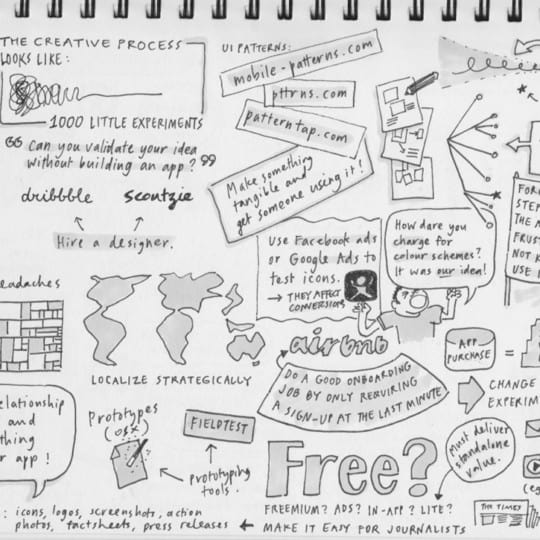 THE CREATIVE PROCESS
LOOKS LIKE:
1000 LITTLE EXPERIMENTS
"Can you validate your idea
without building an app?"
dribbble
scoutzie
Hire a designer.
UI PATTERNS:
mobile-patterns.com
pttrns.com
patterntap.com
Make something
tangible and
get someone using it!
Use Facebook ads
or Google Ads to
test icons.
→ THEY AFFECT
CONVERSIONS
How dare you
charge for
colour schemes?
It was our idea!
STEP
THE A
NOT K
USE
eadaches
LOCALIZE STRATEGICALLY
airbnb
DO A GOOD ONBOARDING
JOB BY ONLY REQUIRING
A SIGN-UP AT THE LAST MINUTE
APP
PURCHASE
=
CHANGE
EXPERIM
elationship
and
thing
r app!
Prototypes
(OSX)
FIELDTEST
prototyping
tools.
Free?
Must deliver
standalone
value.
(eg
FREEMIUM? ADS? IN-APP? LITE?
← MAKE IT EASY FOR JOURNALISTS
THE TIMES
: icons, logos, screenshots, action
photos, factsheets, press releases